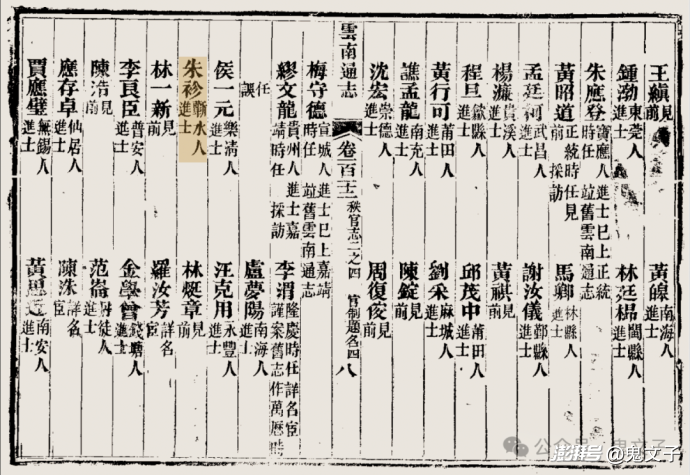 王縝見前 黃皞南海人進士
鍾渤東莞人進士 林廷㭿閩縣人進士
朱應登寶應人進士巳上正統時任並舊雲南通志
黃昭道正統時任見前採訪 馬卿林縣人進士
孟廷柯武昌人進士 謝汝儀鄞縣人進士
楊濂貴溪人進士 黃祺見前
程旦歙縣人進士 邱茂中莆田人進士
黃行可莆田人進士 劉采麻城人進士
譙孟龍南充人進士 陳錠見前
沈宏崇德人進士 周復俊見前
雲南通志 卷百十三 秩官志二之四 官制題名四 八
梅守德宣城人進士巳上嘉靖時任並舊雲南通志
繆文龍貴州人進士嘉靖時任採訪 李渭隆慶時任詳名宦謹案舊志作萬歷時
任誤 盧夢陽南海人進士
侯一元樂清人進士 汪克用永豐人進士
朱袗蘄水人進士 林烶章見前
林一新見前 羅汝芳詳名宦
李良臣普安人進士 金學曾錢塘人進士
陳洧見前 范崙丹徒人進士
應存卓仙居人進士 陳洙詳名宦
賈應璧無錫人進士 黃思 南安人進士
澎湃号@鬼文子